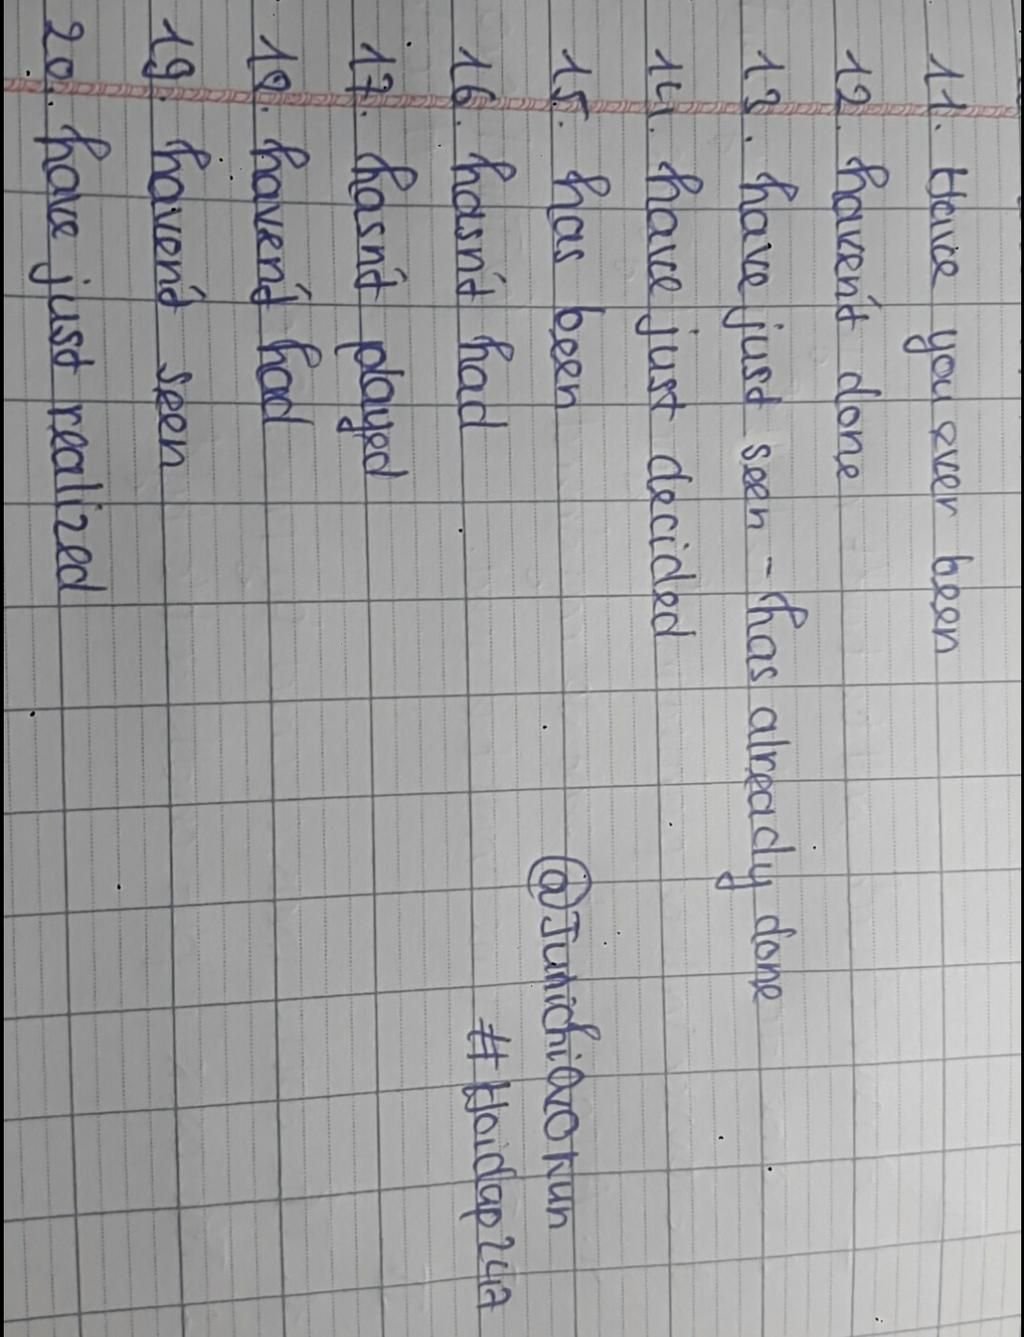 11. Have you ever been
12. haven't done
13. have just seen - has already done
14. have just decided
15. has been
16. hasn't had
17. hasn't played
18. haven't had
19. haven't seen
20. have just realized
#Hoidap247